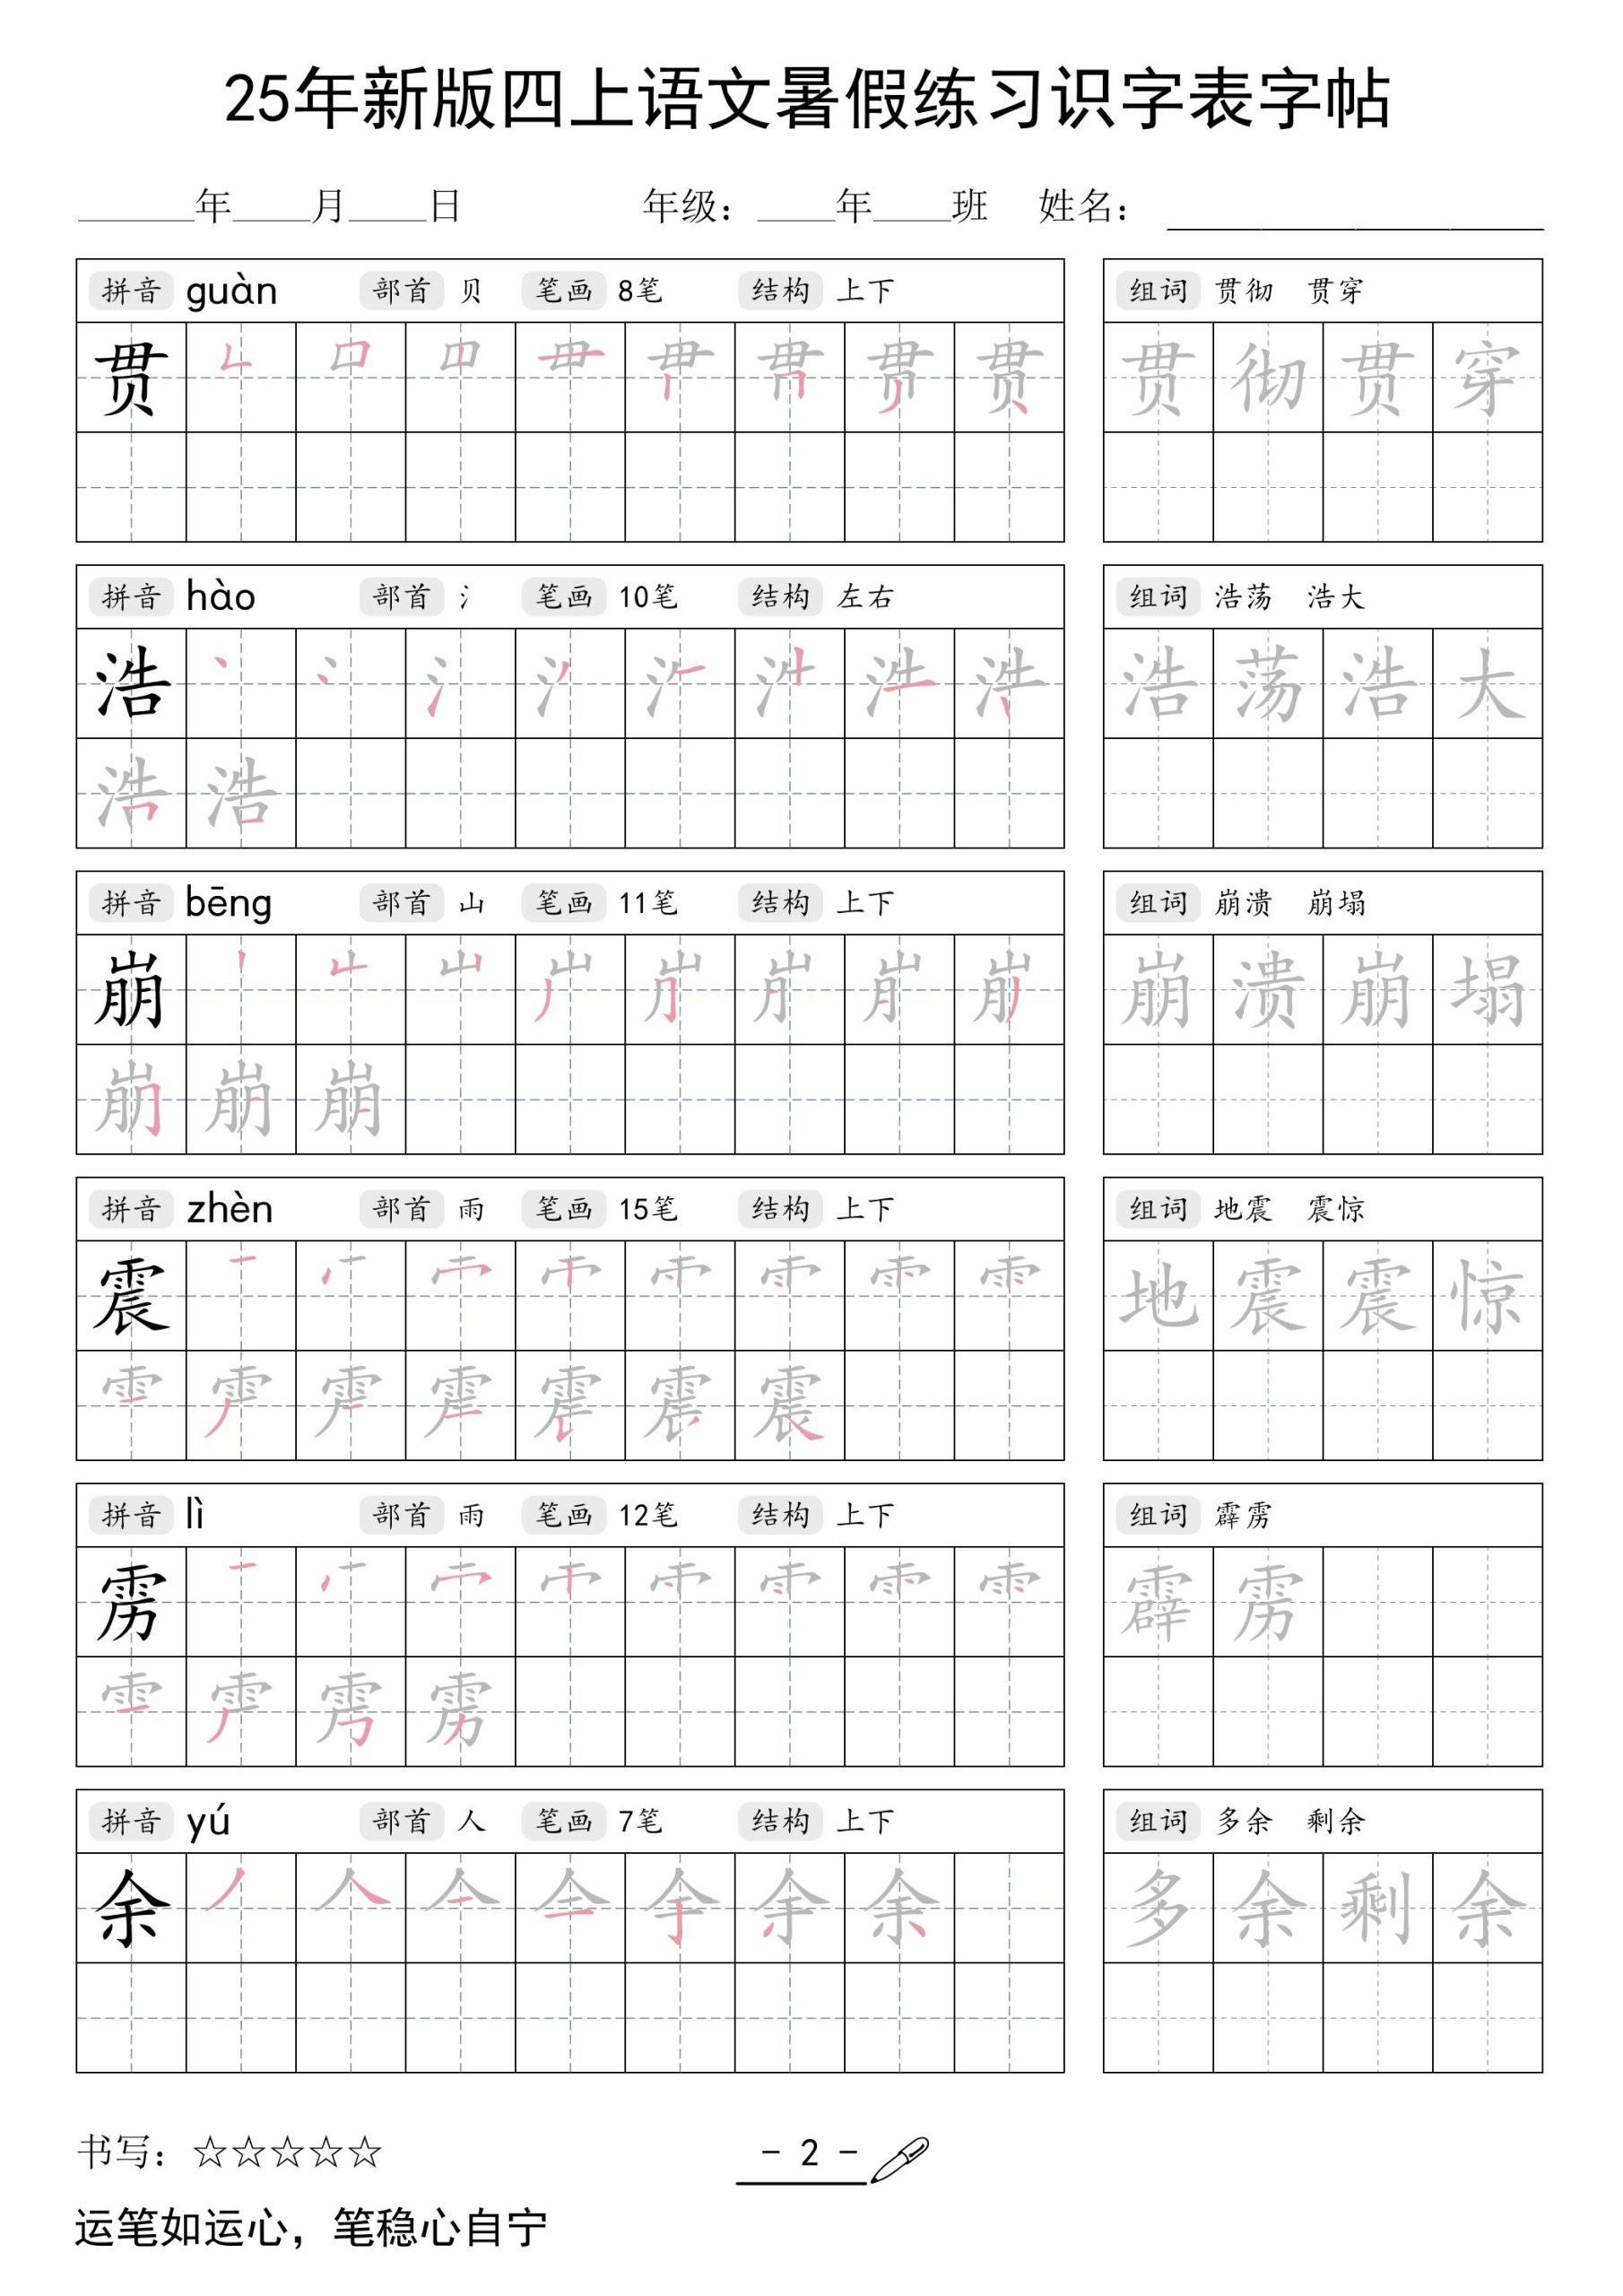 25年新版四上语文暑假练习识字表字帖
____年___月___日 年级：___年___班 姓名：
拼音 guàn 部首 贝 笔画 8笔 结构 上下
组词 贯彻 贯穿
贯
贯彻贯穿
拼音 hào 部首 氵 笔画 10笔 结构 左右
组词 浩荡 浩大
浩
浩荡浩大
浩浩
拼音 bēng 部首 山 笔画 11笔 结构 上下
组词 崩溃 崩塌
崩
崩溃崩塌
崩崩崩
拼音 zhèn 部首 雨 笔画 15笔 结构 上下
组词 地震 震惊
震
地震震惊
震
拼音 lì 部首 雨 笔画 12笔 结构 上下
组词 霹雳
雳
霹雳
雳
拼音 yú 部首 人 笔画 7笔 结构 上下
组词 多余 剩余
余
多余剩余
书写：☆☆☆☆☆
- 2 -
运笔如运心，笔稳心自宁